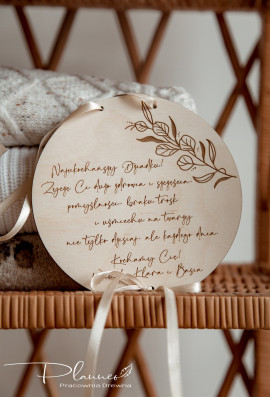 Najukochańszy Dziadku!
Życzę Ci dużo zdrowia i szczęścia
pomyślności, braku trosk
i uśmiechu na twarzy
nie tylko dzisiaj ale każdego dnia
Kochamy Cię!
Klara i Basia
Planneo
Pracownia Drewna